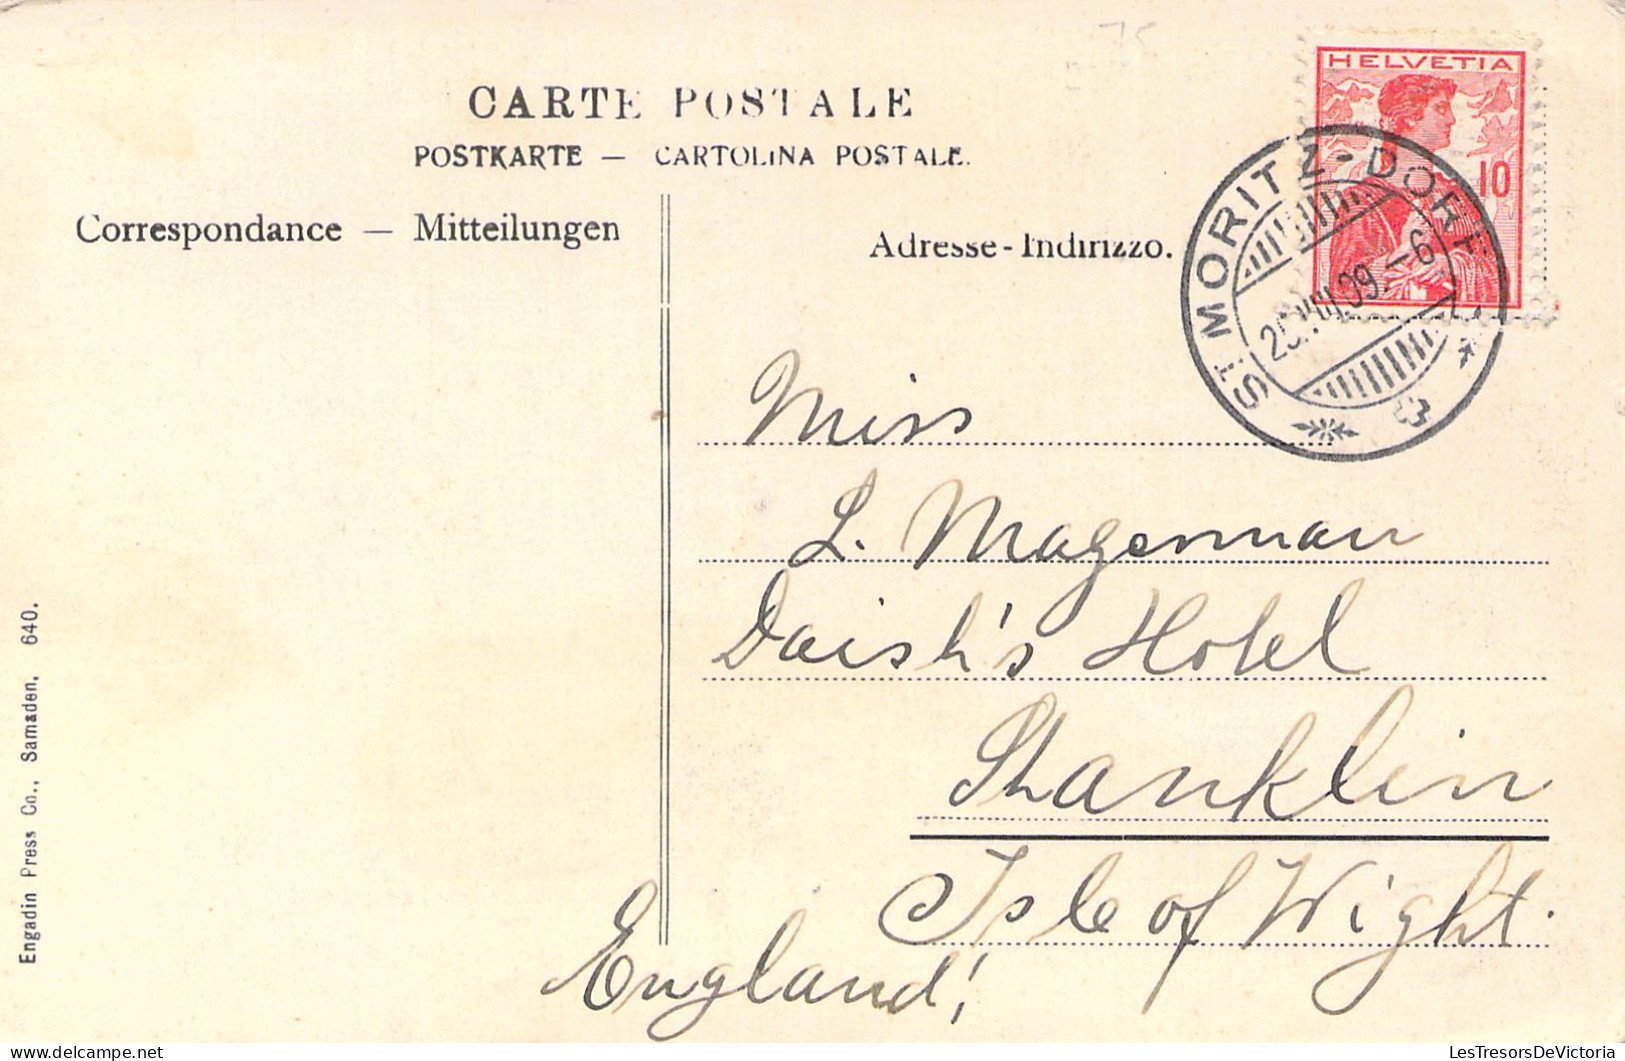 HELVETIA
10
CARTE POSTALE
POSTKARTE — CARTOLINA POSTALE.
Correspondance — Mitteilungen
Adresse - Indirizzo.
ST MORITZ-DORF
VIII.09.-6
Miss
L. Magenman
Daish's Hotel
Shanklin
Isle of Wight.
England!
Engadin Press Co., Samaden. 640.
LesTresorsDeVictoria